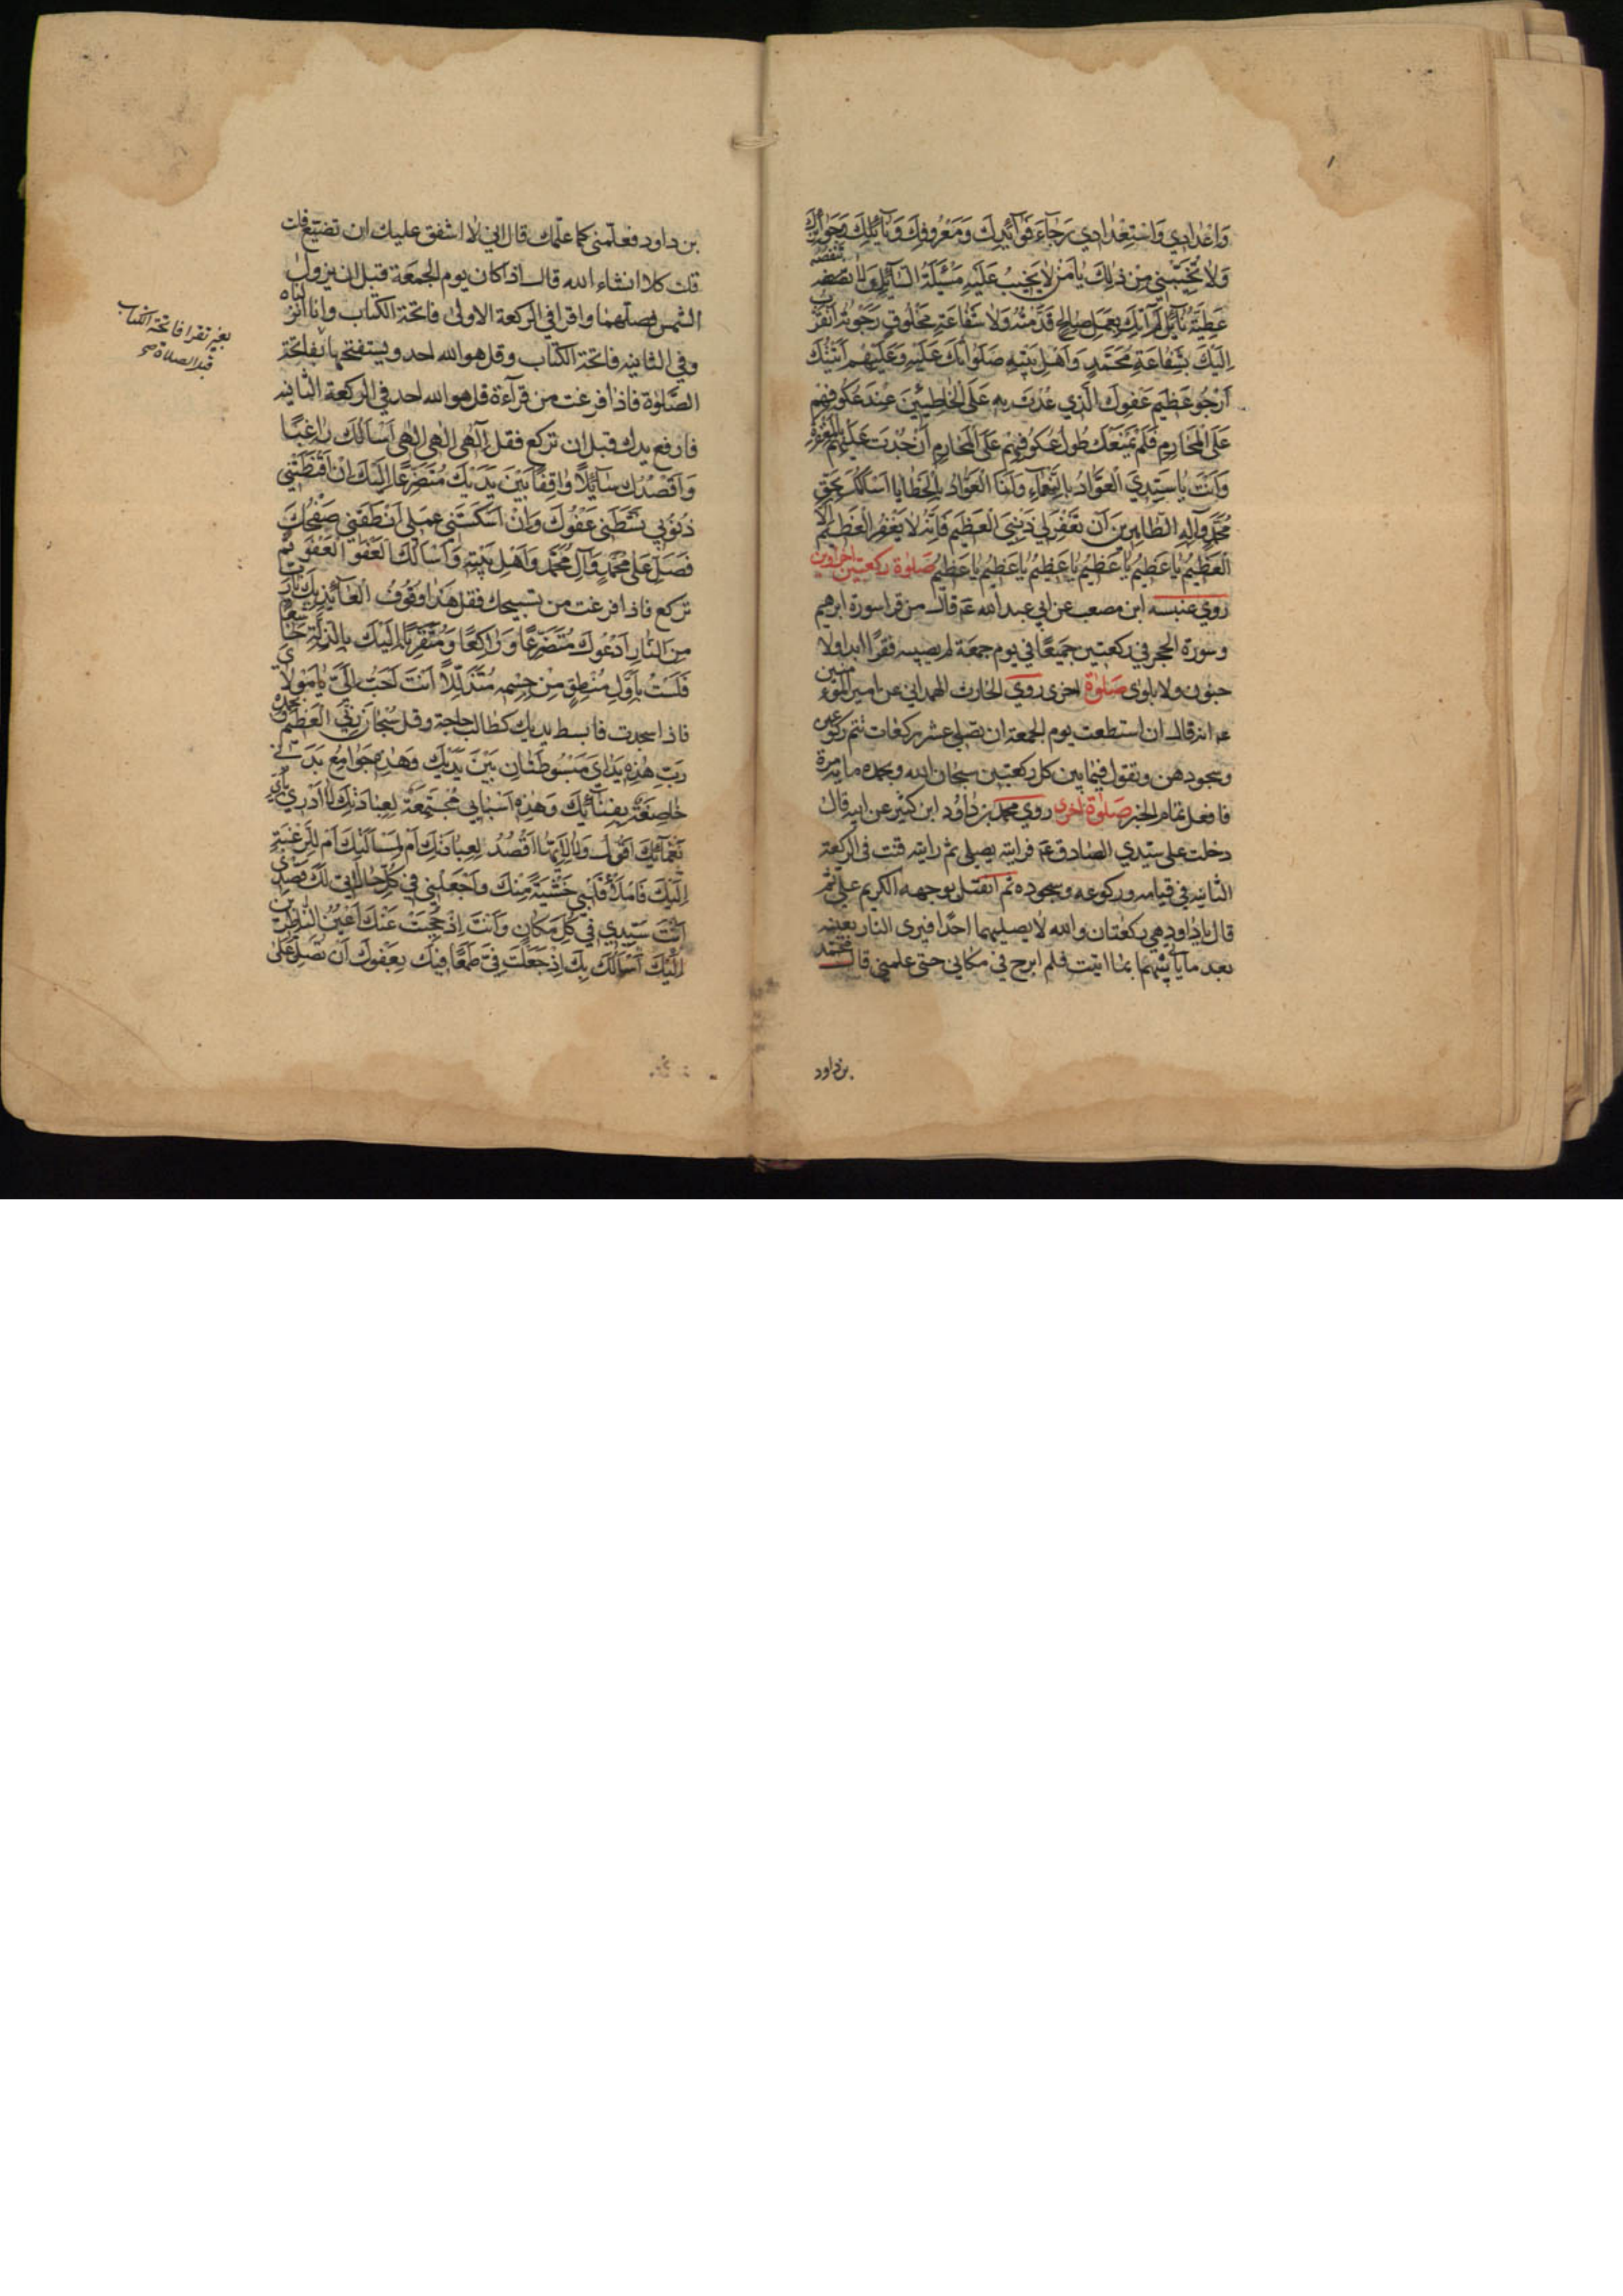 وَاعْدَادِي وَاسْتِعْدَادِي رَجَاءَ فَوَائِدِكَ وَمَعْرُوفِكَ وَنَائِلِكَ وَجَوَائِزِكَ
وَلَا تُخَيِّبْنِي مِنْ ذٰلِكَ يَا مَنْ لَا يَخِيبُ عَلَيْهِ مَسْئَلَةُ السَّائِلِ وَلَا تنقصه
عَطِيَّةُ نَائِلٍ لَمْ آتِكَ بِعَمَلٍ صَالِحٍ قَدَّمْتُهُ وَلَا شَفَاعَةِ مَخْلُوقٍ رَجَوْتُهُ اَتَقَرَّبُ
اِلَيْكَ بِشَفَاعَةِ مُحَمَّدٍ وَاَهْلِ بَيْتِهِ صَلَوَاتُكَ عَلَيْهِ وَعَلَيْهِمْ اَتَيْتُكَ
اَرْجُو عَظِيمَ عَفْوِكَ الَّذِي عُدْتَ بِهِ عَلَى الْخَاطِئِينَ عِنْدَ عُكُوفِهِمْ
عَلَى الْمَحَارِمِ فَلَمْ يَمْنَعْكَ طُولُ عُكُوفِهِمْ عَلَى الْمَحَارِمِ اَنْ جُدْتَ عَلَيْهِمْ بِالْمَغْفِرَةِ
وَاَنْتَ يَا سَيِّدِي الْعَوَّادُ بِالنَّعْمَاءِ وَاَنَا الْعَوَّادُ بِالْخَطَايَا اَسْاَلُكَ بِحَقِّ
مُحَمَّدٍ وَآلِهِ الطَّاهِرِينَ اَنْ تَغْفِرَ لِي ذَنْبِيَ الْعَظِيمَ فَاِنَّهُ لَا يَغْفِرُ الْعَظِيمَ اِلَّا
الْعَظِيمُ يَا عَظِيمُ يَا عَظِيمُ يَا عَظِيمُ يَا عَظِيمُ يَا عَظِيمُ صَلوٰة ركعتين اخراوين
روي عنبسه ابن مصعب عن ابي عبد الله عم قال من قرا سورة ابرهيم
وسورة الحجر في ركعتين جميعًا في يوم جمعة لم يصبه فقرًا ابدا ولا
جنون ولا بلوى صَلوٰة اخرى روي الحارث الهمداني عن امير المؤمنين
عم انه قال ان استطعت يوم الجمعة ان تصلي عشر ركعات تتم ركوعهن
وسجودهن وتقول فيما بين كل ركعتين سبحان الله وبحمده مايه مرة
فافعل تمام الخبر صَلوٰة اخرى روي محمد بن داود ابن كثير عن ابيه قال
دخلت على سيدي الصادق عم فرايته يصلي ثم رايته قنت في الركعة
الثانيه في قيامه وركوعه وسجوده ثم انفتل بوجهه الكريم علي ثم
قال يا داود هي ركعتان والله لا يصليهما احدًا فيرى النار بعينه
بعد ما ياتي بينهما بما اتيت فلم ابرح في مكاني حتى علمني قال محمد
بن داود
بن داود فعلمني كما علمك قال اني لا اشفق عليك ان تضيع قلت
قلت كلا انشاء الله قال اذا كان يوم الجمعة قبل ان يزول
الشمس فصلهما واقرا في الركعة الاولى فاتحة الكتاب وانا انزلناه
وفي الثانيه فاتحة الكتاب وقل هو الله احد ويستفتحها بفاتحة
الصَّلوٰة فاذا فرغت من قراءة قل هو الله احد في الركعة الثانيه
فارفع يدك قبل ان تركع فقل اِلٰهِي اِلٰهِي اِلٰهِي اَسْاَلُكَ رَاغِبًا
وَاَقْصُدُكَ سَائِلًا وَاقِفًا بَيْنَ يَدَيْكَ مُتَضَرِّعًا اِلَيْكَ اِنْ اَقْنَطَتْنِي
ذُنُوبِي نَشَّطَنِي عَفْوُكَ وَاِنْ اَسْكَتَنِي عَمَلِي اَنْطَقَنِي صَفْحُكَ
فَصَلِّ عَلَى مُحَمَّدٍ وَآلِ مُحَمَّدٍ وَاَهْلِ بَيْتِهِ وَاَسْاَلُكَ الْعَفْوَ الْعَفْوَ ثم
تركع فاذا فرغت من تسبيحك فقل هٰذَا وُقُوفُ الْعَائِذِ بِكَ يَا رَبِّ
مِنَ النَّارِ اَدْعُوكَ مُتَضَرِّعًا وَرَاكِعًا وَمُتَقَرِّبًا اِلَيْكَ بِالذِّلَّةِ خَاشِعًا
فَلَسْتُ بِاَوَّلِ مُنْطِقٍ مِنْ حِشْمِهِ مُتَذَلِّلًا اَنْتَ اَحَبُّ اِلَيَّ يَا مَوْلَايَ
فاذا سجدت فابسط يديك كطالب حاجة وقل سُبْحَانَ رَبِّيَ الْعَظِيمِ وَبِحَمْدِهِ
رَبِّ هٰذِهِ يَدَايَ مَبْسُوطَتَانِ بَيْنَ يَدَيْكَ وَهٰذِهِ جَوَامِعُ بَدَنِي
خَاضِعَةٌ بِفِنَائِكَ وَهٰذِهِ اَسْبَابِي مُجْتَمِعَةٌ لِعِبَادَتِكَ لَا اَدْرِي بِاَيِّ
نَعْمَائِكَ اَقُولُ وَلَا لِاَيِّهَا اَقْصُدُ لِعِبَادَتِكَ اَمْ لِمَسْاَلَتِكَ اَمْ لِلرَّغْبَةِ
اِلَيْكَ فَامْلَأْ قَلْبِي خَشْيَةً مِنْكَ وَاجْعَلْنِي فِي كُلِّ حَالَاتِي لَكَ قَصْدِي
اَنْتَ سَيِّدِي فِي كُلِّ مَكَانٍ وَاَنْتَ اِذْ حُجِبَتْ عَنْكَ اَعْيُنُ النَّاظِرِينَ
اِلَيْكَ اَسْاَلُكَ بِكَ اِذْ جَعَلْتَ فِيَّ طَمَعًا فِيكَ بِعَفْوِكَ اَنْ تُصَلِّيَ عَلَى
تقرا فاتحة الكتاب
الصلاة صح